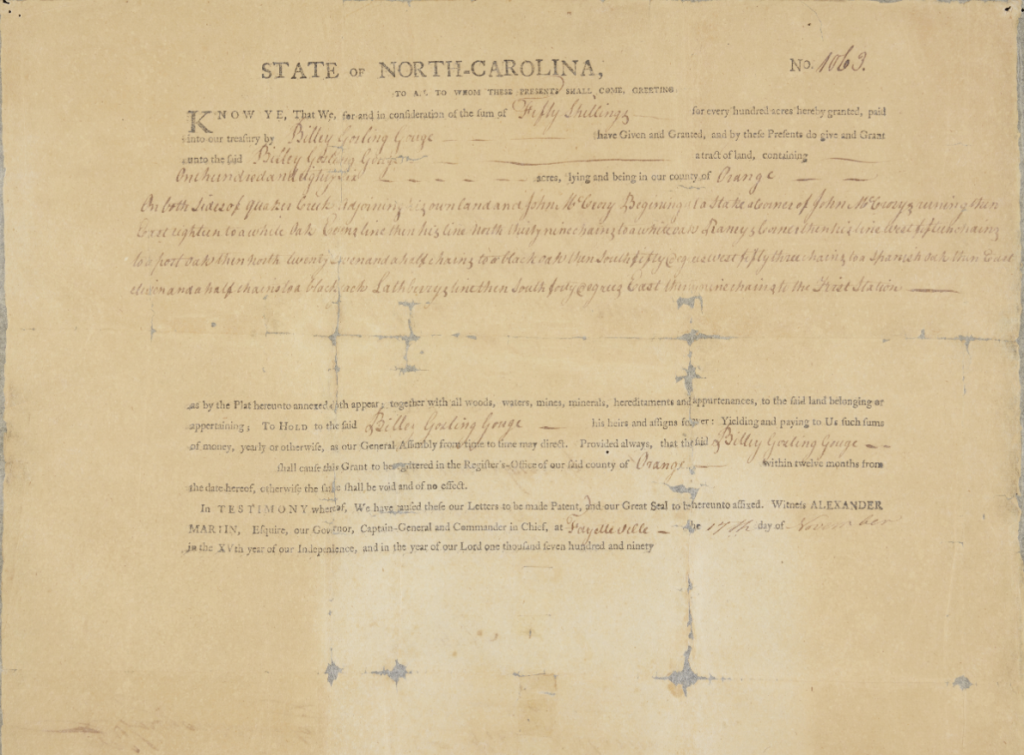 STATE OF NORTH-CAROLINA,
No. 1063.
TO ALL TO WHOM THESE PRESENTS SHALL COME, GREETING.
KNOW YE, That We, for and in consideration of the sum of Fifty Shillings for every hundred acres hereby granted, paid
into our treasury by Billey Gosling Gouge have Given and Granted, and by these Presents do give and Grant
unto the said Billey Gosling Gouge a tract of land, containing
One hundred and eighty six acres, lying and being in our county of Orange
On both sides of Quaker Creek adjoining his own land and John McCrory Begining at a Stake a corner of John McCrory runing then
East eighteen to a white Oak line then his line North thirty nine chains to a white oak corner then his line West fifteen chains
to a post oak then north twenty seven and a half chains to a black oak then South fifty Degrees west fifty three chains to a Spanish oak then East
eleven and a half chains to a black jack line then South forty Degrees East thirty nine chains to the First Station
as by the Plat hereunto annexed doth appear; together with all woods, waters, mines, minerals, hereditaments and appurtenances, to the said land belonging or
appertaining; To HOLD to the said Billey Gosling Gouge his heirs and assigns forever: Yielding and paying to Us such sums
of money, yearly or otherwise, as our General Assembly from time to time may direct. Provided always, that the said Billey Gosling Gouge
shall cause this Grant to be registered in the Register's-Office of our said county of Orange within twelve months from
the date hereof, otherwise the same shall be void and of no effect.
In TESTIMONY whereof, We have caused these our Letters to be made Patent, and our Great Seal to be hereunto affixed. Witness ALEXANDER
MARTIN, Esquire, our Governor, Captain-General and Commander in Chief, at Fayetteville the 17th day of November
in the XVth year of our Independence, and in the year of our Lord one thousand seven hundred and ninety